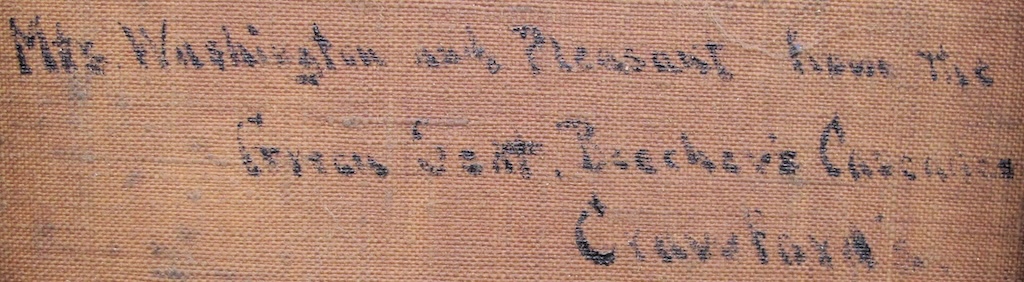 Mts. Washington and Pleasant from the
Seat, Beecher's Cascades
Crawford's